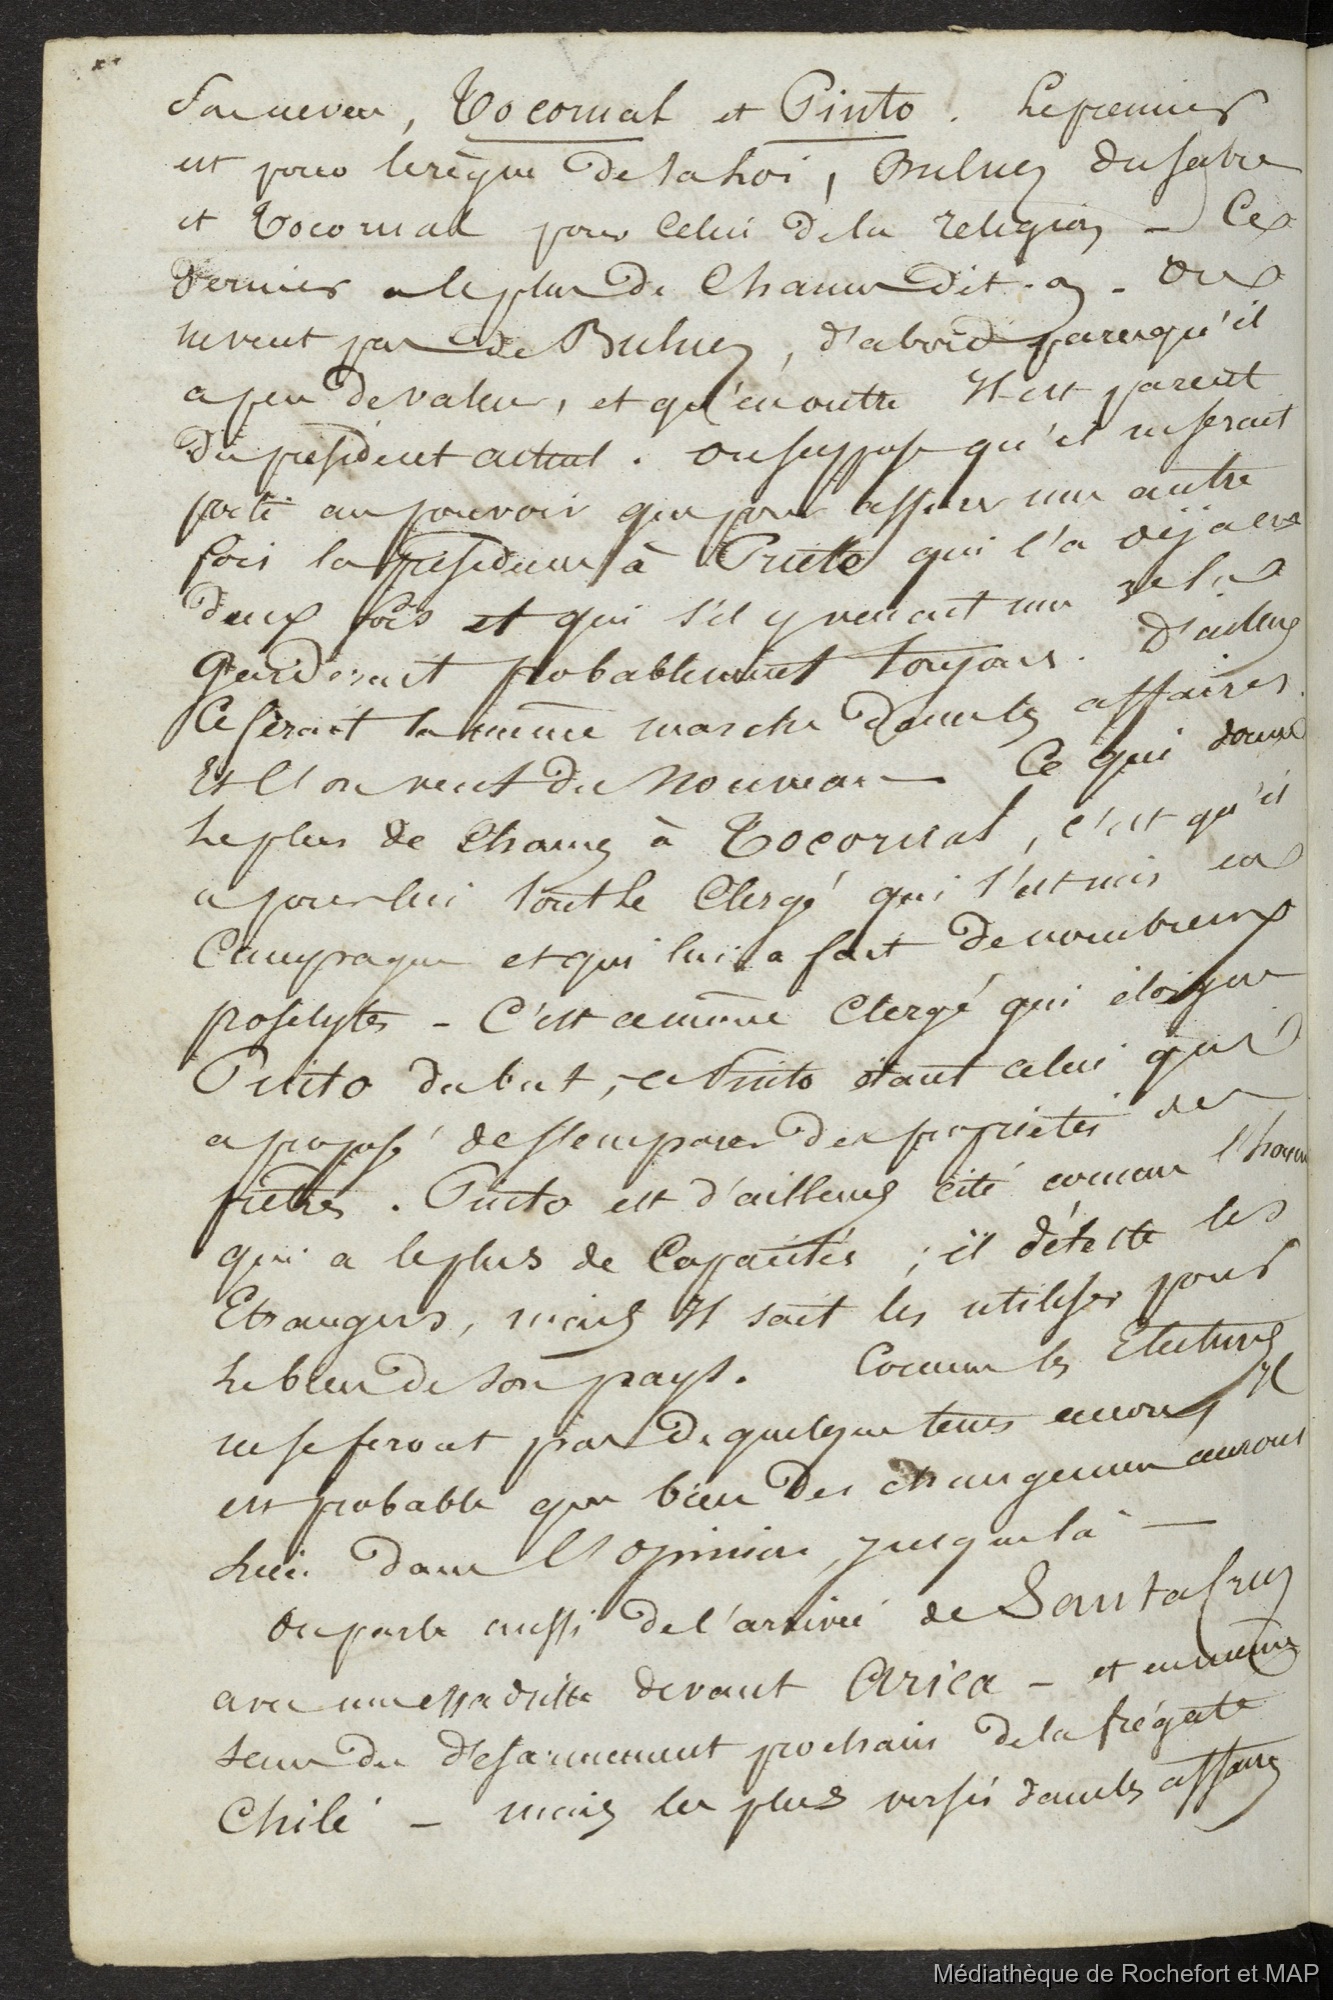 Son neveu, Tocornal et Pinto. Le premier
est pour le règne de la Loi, Bulnes du sabre
et Tocornal pour celui de la religion - Ce
dernier a le plus de chance dit-on - On
ne veut pas de Bulnes, d'abord parcequ'il
a peu de valeur, et qu'en outre Il est parent
du président actuel. on suppose qu'il ne serait
porté au pouvoir que pour assurer une autre
fois la présidence à Prieto qui l'a déjà eue
deux fois et qui s'il y venait une 3e la
garderait probablement toujours. D'ailleurs
Ce serait la même marche dans les affaires
Et l'on veut du nouveau - Ce qui donne
le plus de chance à Tocornal, c'est qu'il
a pour lui tout le Clergé qui s'est mis en
Campagne et qui lui a fait de nombreux
prosélytes - C'est ce même Clergé qui éloigne
Pinto du but, ce Pinto étant celui qui
a proposé de s'emparer des propriétés des
prêtres. Pinto est d'ailleurs cité comme l'homme
qui a le plus de Capacités ; il déteste les
Etrangers, mais Il sait les utiliser pour
le bien de son pays. Comme les Elections
ne se feront pas de quelque tems encore, Il
est probable que bien des changemens auront
lieu dans l'opinion, jusque là -
On parle aussi de l'arrivée de Santa Cruz
avec une escadrille devant Arica - et en même
tems du désarmement prochain de la frégate
Chile - mais les plus versés dans les affaires
Médiathèque de Rochefort et MAP